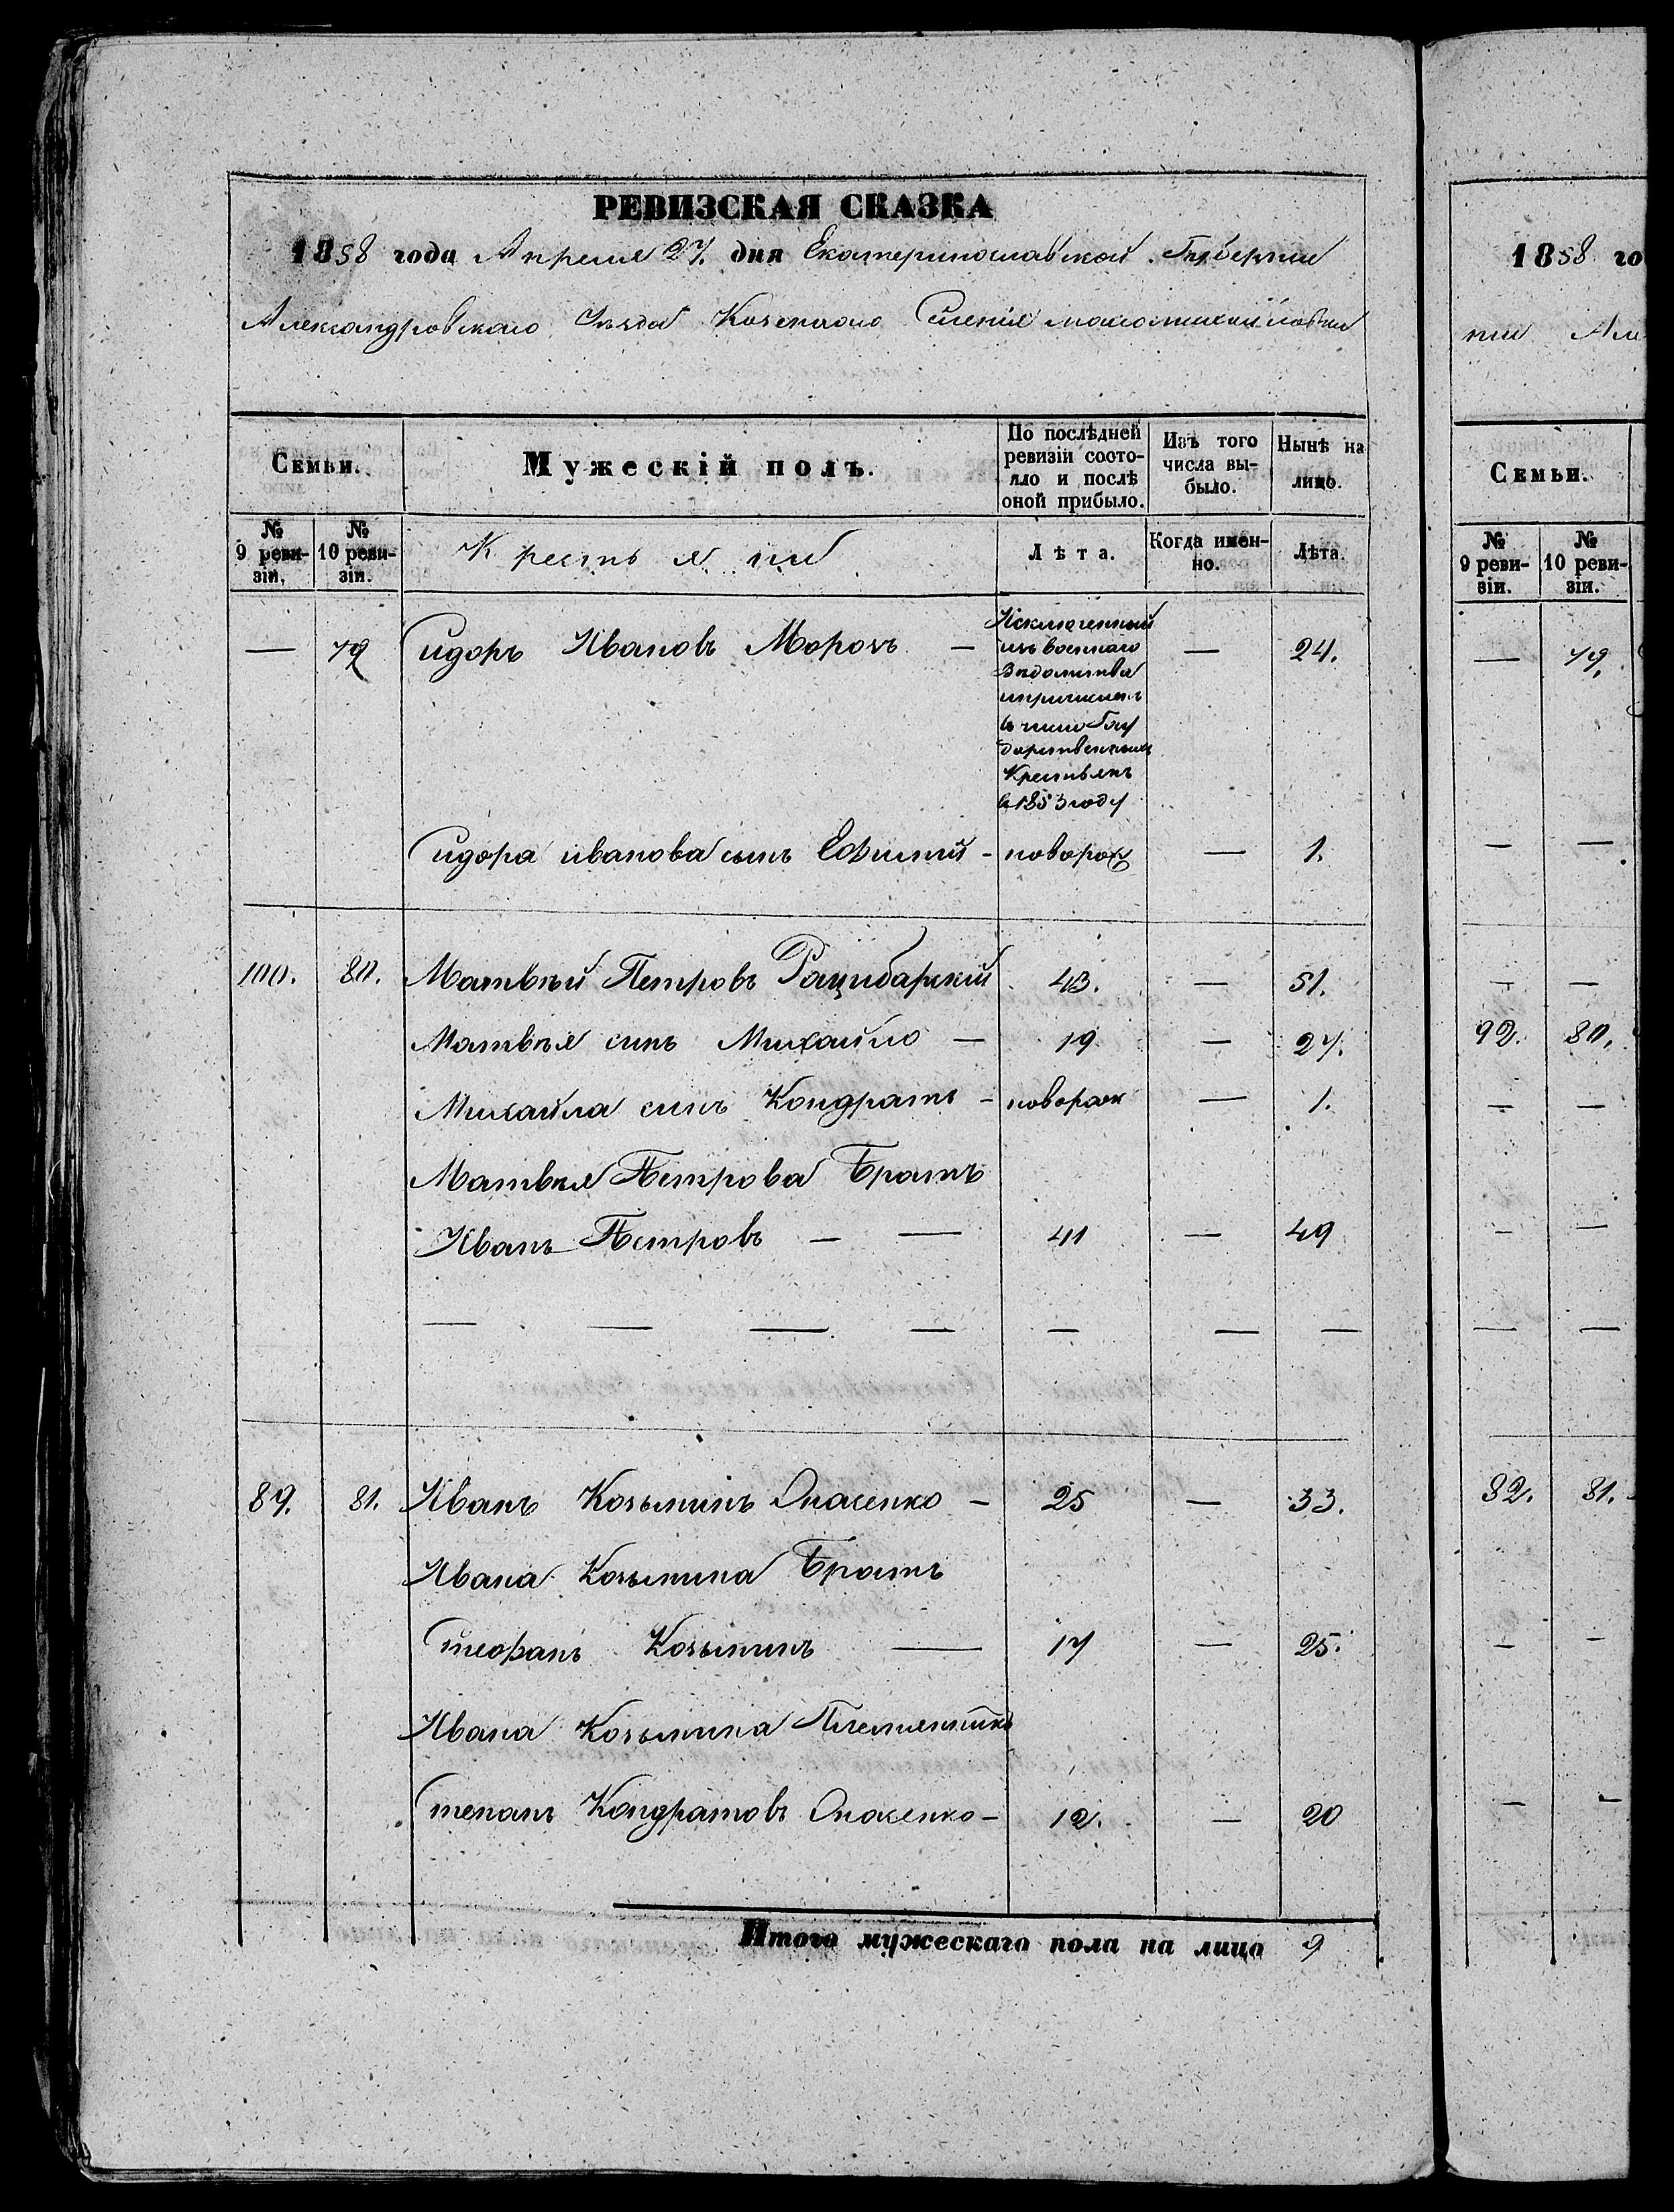 РЕВИЗСКАЯ СКАЗКА
1858 года Апреля 27. дня Екатеринославской Губернии
Александровскаго Уѣзда Козеннаго Селенія маломихайловки
Семьи. Мужескій полъ. По послѣдней ревизіи состояло и послѣ оной прибыло. Изъ того числа выбыло. Нынѣ на лицо.
№ 9 ревизіи. № 10 ревизіи. Крестьяне Лѣта. Когда именно. Лѣта.
— 79 Сидоръ Ивановъ Морозъ — Исключенный — 24.
изъ военнаго
Вѣдомства
и причислен
в число Госу
дарственныхъ
Крестьянъ
в 1853 году
Сидора иванова сынъ Ефимий - новорож — 1.
100. 80. Матвѣй Петровъ Рацибарский 43. — 51.
Матвѣя сынъ Михайло — 19 — 27.
Михайла сынъ Кондратъ - новорож — 1.
Матвѣя Петрова Братъ
Иванъ Петровъ — — 41 — 49
— — — — — — —
89. 81. Иванъ Козьминъ Опасенко — 25 — 33.
Ивана Козьмина Братъ
Стефанъ Козьминъ — 17 — 25.
Ивана Козьмина Племянникъ
Степанъ Кондратовъ Опасенко — 12. — 20
Итого мужескаго пола на лицо 9
1858 го
нии Але
Семьи.
№ 9 ревизіи. № 10 ревизіи.
— 79.
— —
— —
92. 80.
— —
— —
— —
82. 81.
— —
— —